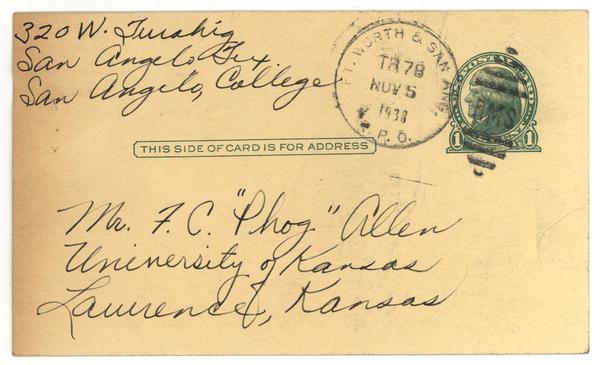 320 W. Twohig
San Angelo Tex.
San Angelo, College
FT. WORTH & SAN ANG.
TR 78
NOV 5
1938
R. P. O.
RMS
1 1
THIS SIDE OF CARD IS FOR ADDRESS
Mr. F. C. "Phog" Allen
University of Kansas
Lawrence, Kansas